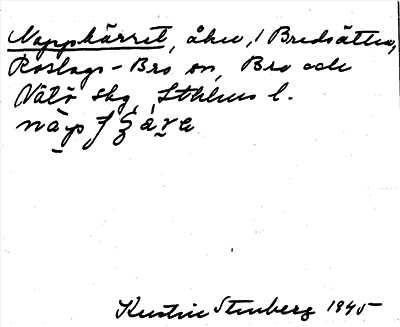 Nappkärret, åker, i Bredsätra,
Roslags-Bro sn, Bro och
Vätö skg, Sthlms l.
Kerstin Stenberg 1945